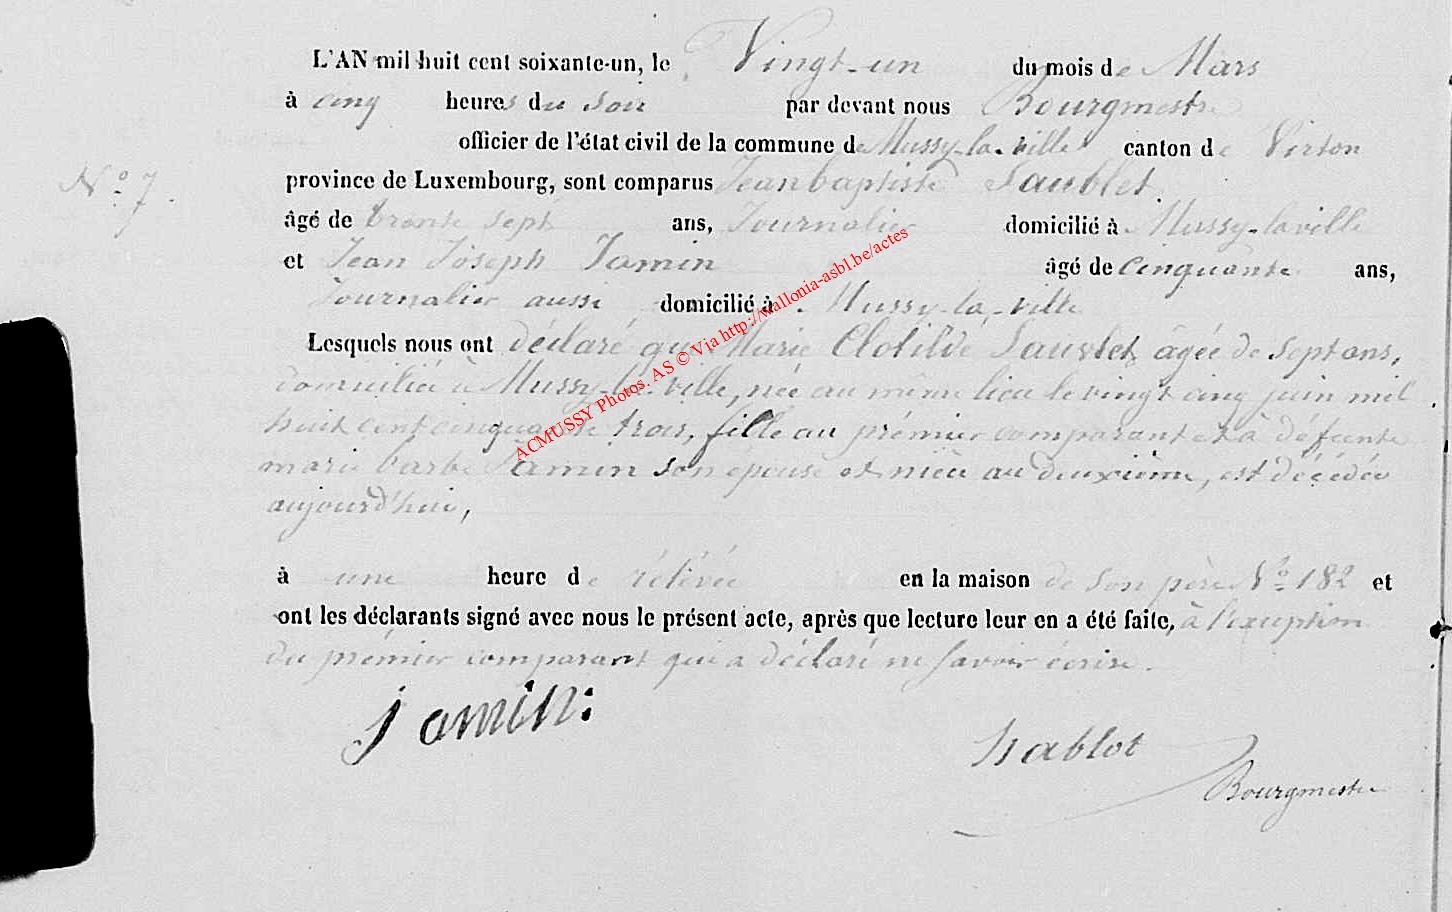 L'AN mil huit cent soixante-un, le Vingt-un du mois de Mars
à cinq heures du soir par devant nous Bourgmestre
officier de l'état civil de la commune de Mussy-la-ville canton de Virton
N° 7. province de Luxembourg, sont comparus Jean baptiste Saublet.
âgé de trente sept ans, Journalier domicilié à Mussy-la ville
et Jean Joseph Jamin âgé de cinquante ans,
Journalier aussi domicilié à Mussy-la-ville
Lesquels nous ont déclaré que Marie Clotilde Saublet agée de Sept ans,
domiciliée à Mussy-la-ville, née au même lieu le vingt cinq juin mil
huit cent cinquante trois, fille au prémier comparant et à défunte
marie barbe Jamin son épouse et nièce au deuxième, est décédée
aujourd'hui,
à une heure de rélévée en la maison de son père N° 182 et
ont les déclarants signé avec nous le présent acte, après que lecture leur en a été faite, à l'exception
du prémier comparant qui a déclaré ne savoir écrire.
Jamin
Bourgmestre
ACMUSSY Photos. AS © Via http://wallonia-asbl.be/actes